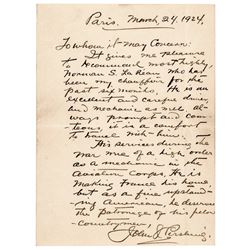 Paris. March, 24, 1924,
To whom it May Concern:
It gives me pleasure
to recommend most highly
Norman S. who has
been my chauffeur for the
past six months. He is an
excellent and careful driver
and mechanic as well, al-
ways prompt and cour-
teous, it is a comfort
to travel with him.
His services during the
war were of a high order
as a mechanic in the
Aviation Corps. He is
making France his home
but as a fine upstand-
ing American, he deserves
the patronage of his fellow
countrymen.
John J. Pershing